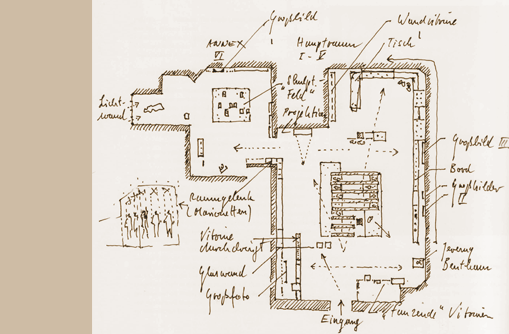 Großbild
Wandvitrine
ANNEX
VI
Hauptraum
I - V
Tisch
Skulpt.
"Feld"
Projektion
Licht-
wand
Großbild III
Bord
Großbilder
Raumgelenk
(Marionetten)
Vitrine
durchdringt
Glaswand
Großfoto
Jeremy
Bentham
Eingang
"tanzende" Vitrinen